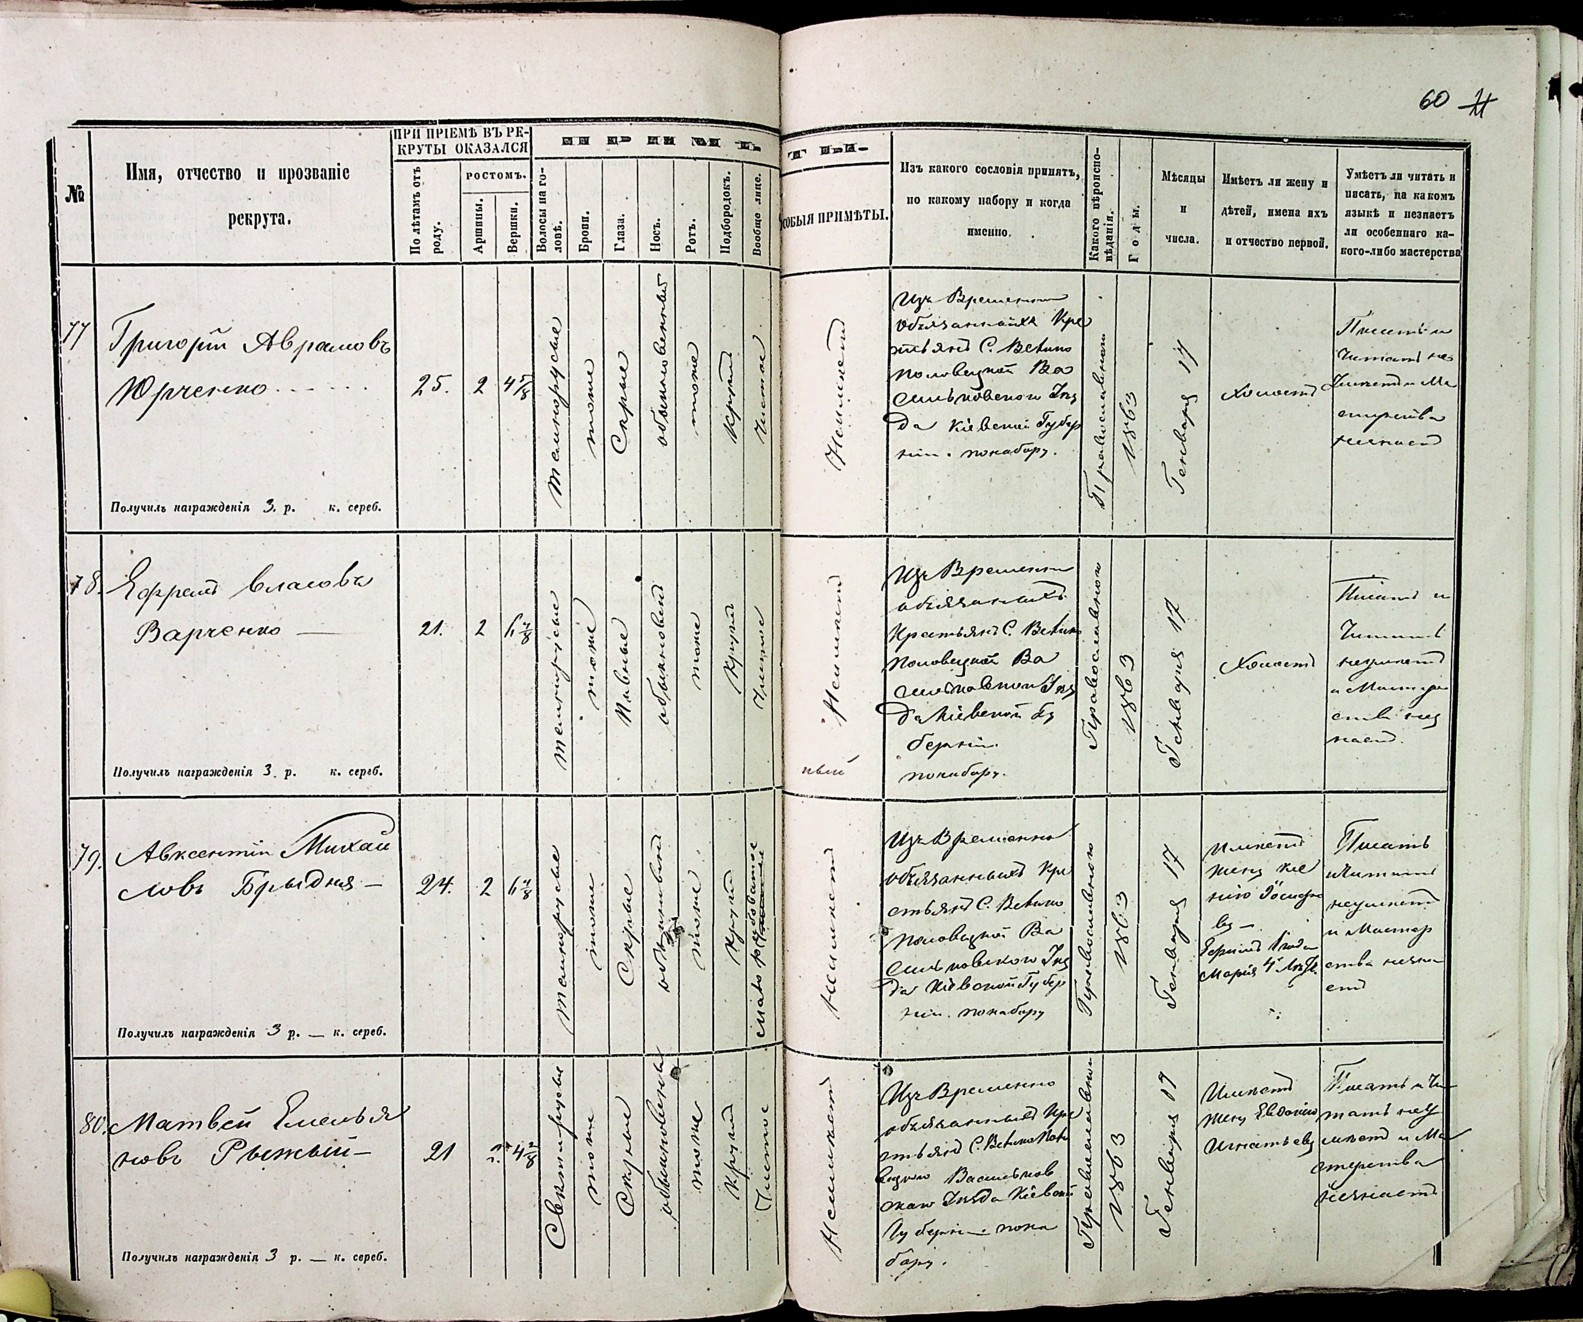 60 21
№
Имя, отчество и прозваніе
рекрута.
ПРИ ПРІЕМѢ ВЪ РЕ-
КРУТЫ ОКАЗАЛСЯ
По лѣтамъ отъ
роду.
ростомъ.
Аршины.
Вершки.
ПРИМѢ
Волосы на го-
ловѣ.
Брови.
Глаза.
Носъ.
Ротъ.
Подбородокъ.
Вообще лице.
ТЫ.
ОСОБЫЯ ПРИМѢТЫ.
Изъ какого сословія принятъ,
по какому набору и когда
именно.
Какого вѣроиспо-
вѣданія.
Годы.
Мѣсяцы
и
числа.
Имѣетъ ли жену и
дѣтей, имена ихъ
и отчество первой.
Умѣетъ ли читать и
писать, на какомъ
языкѣ и незнаетъ
ли особеннаго ка-
кого-либо мастерства
77
Григорій Аврамовъ
Юрченко
25.
2
4 5/8
темнорусые
тоже
Сѣрые
обыкновенный
тоже
круглый
Чистое
Неимѣетъ
Изъ Временно
обязанныхъ Кре
стьянъ С. Велико
половецкой Ва
сильковскаго Уѣз
да Кіевской Губер
ніи. понабору.
Православнаго
1863
Генваря 17
Холостъ
Писать и
Читать не
Умѣетъ и Ма
стерства
незнаетъ
Получилъ награжденія 3. р. к. сереб.
78.
Ефремъ Власовъ
Варченко
21.
2
6 4/8
темнорусые
тоже
Пивные
обыкновен
тоже
Кругл
Чистое
Неимѣетъ
Изъ Временно
обязанныхъ
Крестьянъ С. Велико
половецкой Ва
сильковскаго Уѣз
да Кіевской Гу
берніи
понабору.
Православнаго
1863
Генваря 17
Холостъ
Писать и
Читать
неумѣетъ
и Мастер
ства нез
наетъ.
Получилъ награжденія 3. р. к. сереб.
79.
Авксентій Михай
ловъ Брыдня
24.
2
6 4/8
темнорусые
тоже
Сѣрые
тоже
Кругл
Неимѣетъ
Изъ Временно
обязанныхъ Кре
стьянъ С. Велико
половецкой Ва
сильковскаго Уѣз
да Кіевской Губер
ніи. понабору
Православнаго
1863
Генваря 17
Имѣетъ
Жену Ксе
нію
Марія 4 лѣтъ
Писать
Читать
неумѣетъ
и Мастер
ства незна
етъ
Получилъ награжденія 3 р. — к. сереб.
80.
Матвей Емелья
новъ Рыжый
21
2
4 4/8
Свѣтлорусые
тоже
Сѣрые
обыкновенный
тоже
Круглый
Чистое
Неимѣетъ
Изъ Временно
обязанныхъ Кре
стьянъ С. Велико Поло
вецкой Васильков
скаго Уѣзда Кіевской
Губерніи пона
бору.
Православнаго
1863
Генваря 17
Имѣетъ
Жену Евдокію
Игнатьеву
Писать и Чи
тать неу
мѣетъ и Ма
стерства
незнаетъ
Получилъ награжденія 3 р. — к. сереб.